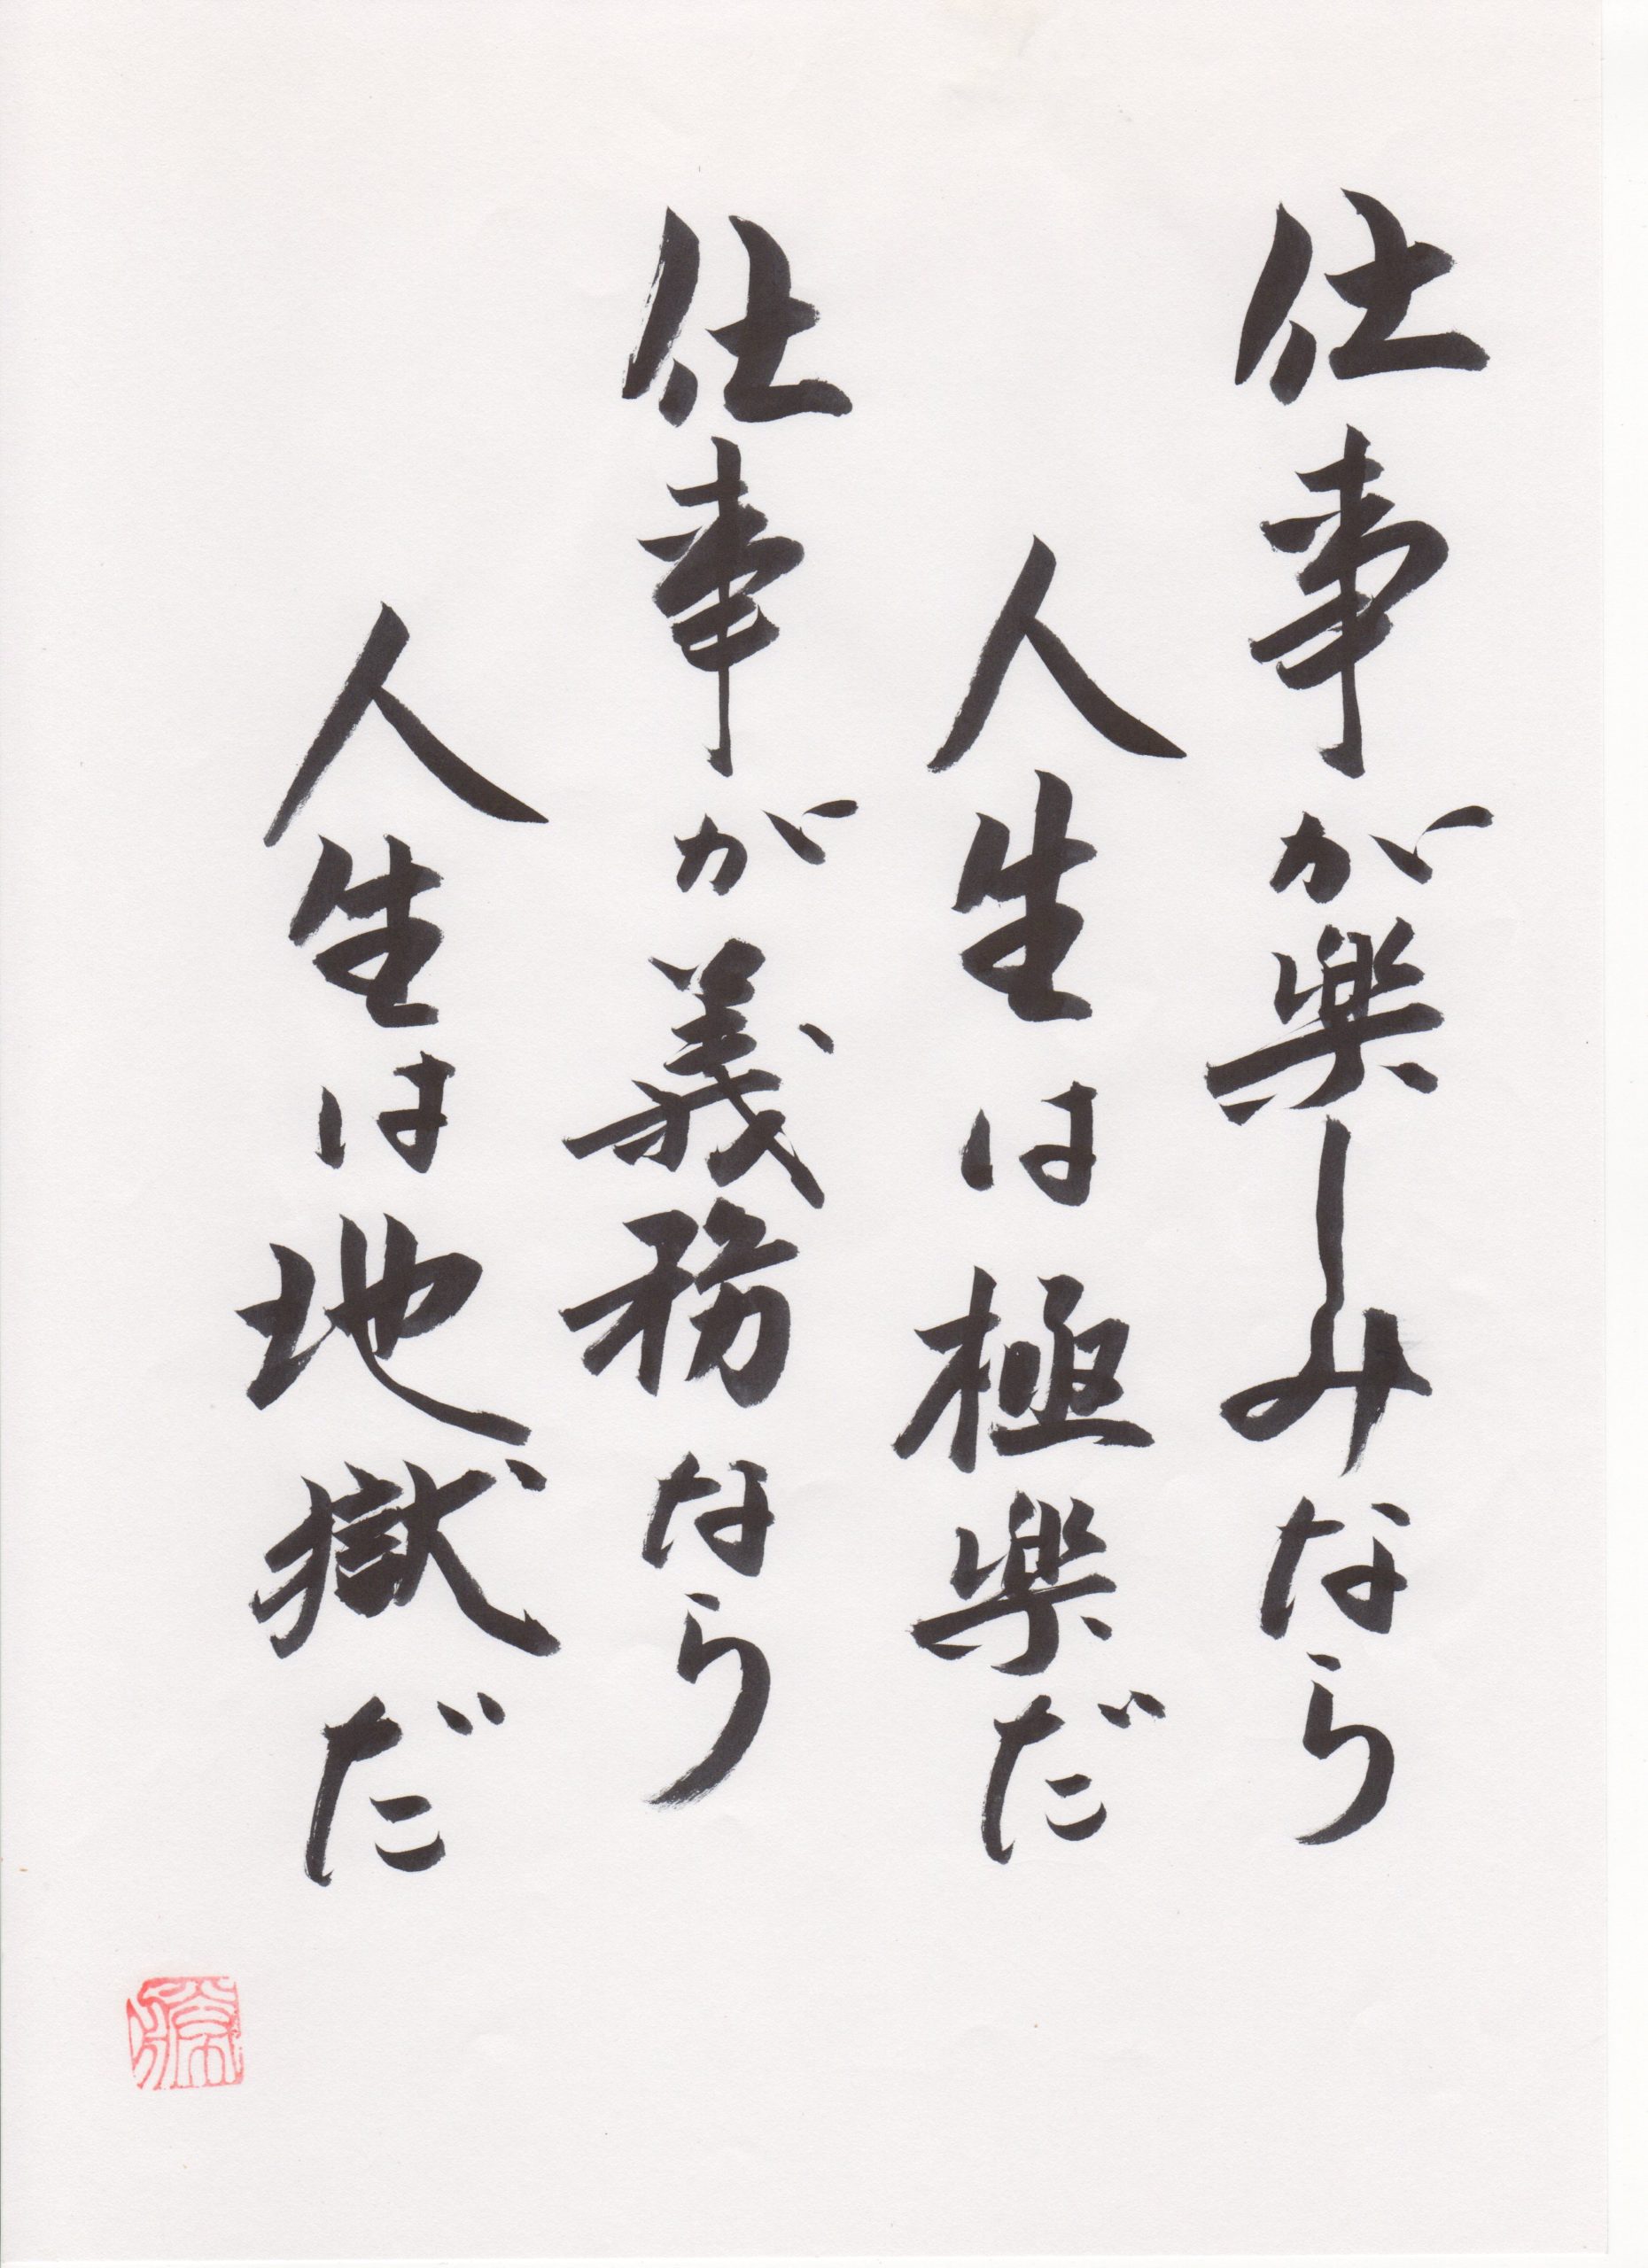 仕事が楽しみなら
人生は極楽だ
仕事が義務なら
人生は地獄だ